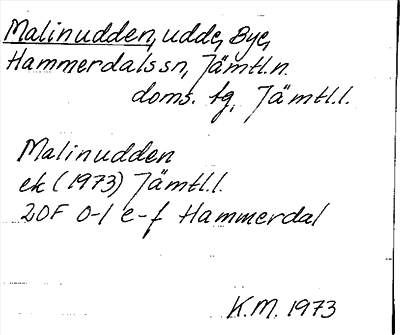 Malinudden, udde, Bye,
Hammerdals sn, Jämtl.n.
doms. tg, Jämtl.l.
Malinudden
ek (1973) Jämtl.l.
20F 0-1 e-f Hammerdal
K.M. 1973